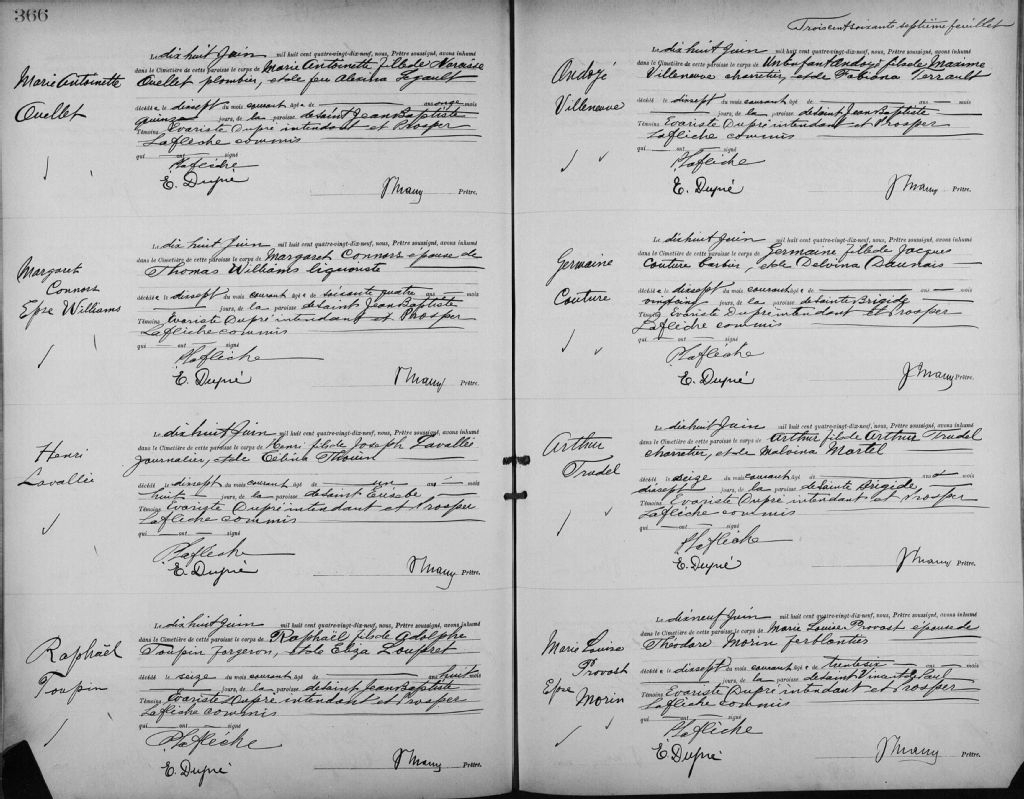 366
Marie Antoinette
Ouellet
Le dix huit Juin mil huit cent quatre-vingt-dix-neuf, nous, Prêtre soussigné, avons inhumé
dans le Cimetière de cette paroisse le corps de Marie Antoinette fille de Narcisse
Ouellet plombier, et de feu Alexina Legault
décédé e le dixsept du mois courant âgé e de ans onze mois
quinze jours, de la paroisse de Saint Jean Baptiste
Témoins Evariste Dupré intendant et Prosper
Laflèche commis
qui ont signé
P. Laflèche
E. Dupré
Prêtre.
Margaret
Connors
Epse Williams
Le dix huit Juin mil huit cent quatre-vingt-dix-neuf, nous, Prêtre soussigné, avons inhumé
dans le Cimetière de cette paroisse le corps de Margaret Connors épouse de
Thomas Williams liquoriste
décédé e le dixsept du mois courant âgé e de soixante quatre ans mois
jours, de la paroisse de Saint Jean Baptiste
Témoins Evariste Dupré intendant et Prosper
Laflèche commis
qui ont signé
P. Laflèche
E. Dupré
Prêtre.
Henri
Lavallée
Le dix huit Juin mil huit cent quatre-vingt-dix-neuf, nous, Prêtre soussigné, avons inhumé
dans le Cimetière de cette paroisse le corps de Henri fils de Joseph Lavallée
journalier, et de
décédé le dixsept du mois courant âgé de un an mois
huit jours, de la paroisse de Saint Eusèbe
Témoins Evariste Dupré intendant et Prosper
Laflèche commis
qui ont signé
P. Laflèche
E. Dupré
Prêtre.
Raphaël
Toupin
Le dix huit Juin mil huit cent quatre-vingt-dix-neuf, nous, Prêtre soussigné, avons inhumé
dans le Cimetière de cette paroisse le corps de Raphaël fils de Adolphe
Toupin forgeron, et de Eliza Loupret
décédé le seize du mois courant âgé de ans huit mois
jours, de la paroisse de Saint Jean Baptiste
Témoins Evariste Dupré intendant et Prosper
Laflèche commis
qui ont signé
P. Laflèche
E. Dupré
Prêtre.
Trois cent soixante septième feuillet
Andozé
Villeneuve
Le dix huit Juin mil huit cent quatre-vingt-dix-neuf, nous, Prêtre soussigné, avons inhumé
dans le Cimetière de cette paroisse le corps de Un enfant Andozé fils de Maxime
Villeneuve charretier, et de Fabiana Terrault
décédé le dixsept du mois courant âgé de ans mois
jours, de la paroisse de Saint Jean Baptiste
Témoins Evariste Dupré intendant et Prosper
Laflèche commis
qui ont signé
P. Laflèche
E. Dupré
Prêtre.
Germaine
Couture
Le dix huit Juin mil huit cent quatre-vingt-dix-neuf, nous, Prêtre soussigné, avons inhumé
dans le Cimetière de cette paroisse le corps de Germaine fille de Jacques
Couture barbier, et de Delvina Daunais
décédé e le dixsept du mois courant âgé e de ans mois
vingt cinq jours, de la paroisse de Sainte Brigide
Témoins Evariste Dupré intendant et Prosper
Laflèche commis
qui ont signé
P. Laflèche
E. Dupré
Prêtre.
Arthur
Trudel
Le dix huit Juin mil huit cent quatre-vingt-dix-neuf, nous, Prêtre soussigné, avons inhumé
dans le Cimetière de cette paroisse le corps de Arthur fils de Arthur Trudel
charretier, et de Malvina Martel
décédé le seize du mois courant âgé de ans mois
dixsept jours, de la paroisse de Sainte Brigide
Témoins Evariste Dupré intendant et Prosper
Laflèche commis
qui ont signé
P. Laflèche
E. Dupré
Prêtre.
Marie Louise
Provost
Epse Morin
Le dix neuf Juin mil huit cent quatre-vingt-dix-neuf, nous, Prêtre soussigné, avons inhumé
dans le Cimetière de cette paroisse le corps de Marie Louise Provost épouse de
Théodore Morin ferblantier
décédé e le dixsept du mois courant âgé e de trente six ans mois
jours, de la paroisse de Saint Vincent de Paul
Témoins Evariste Dupré intendant et Prosper
Laflèche commis
qui ont signé
P. Laflèche
E. Dupré
Prêtre.